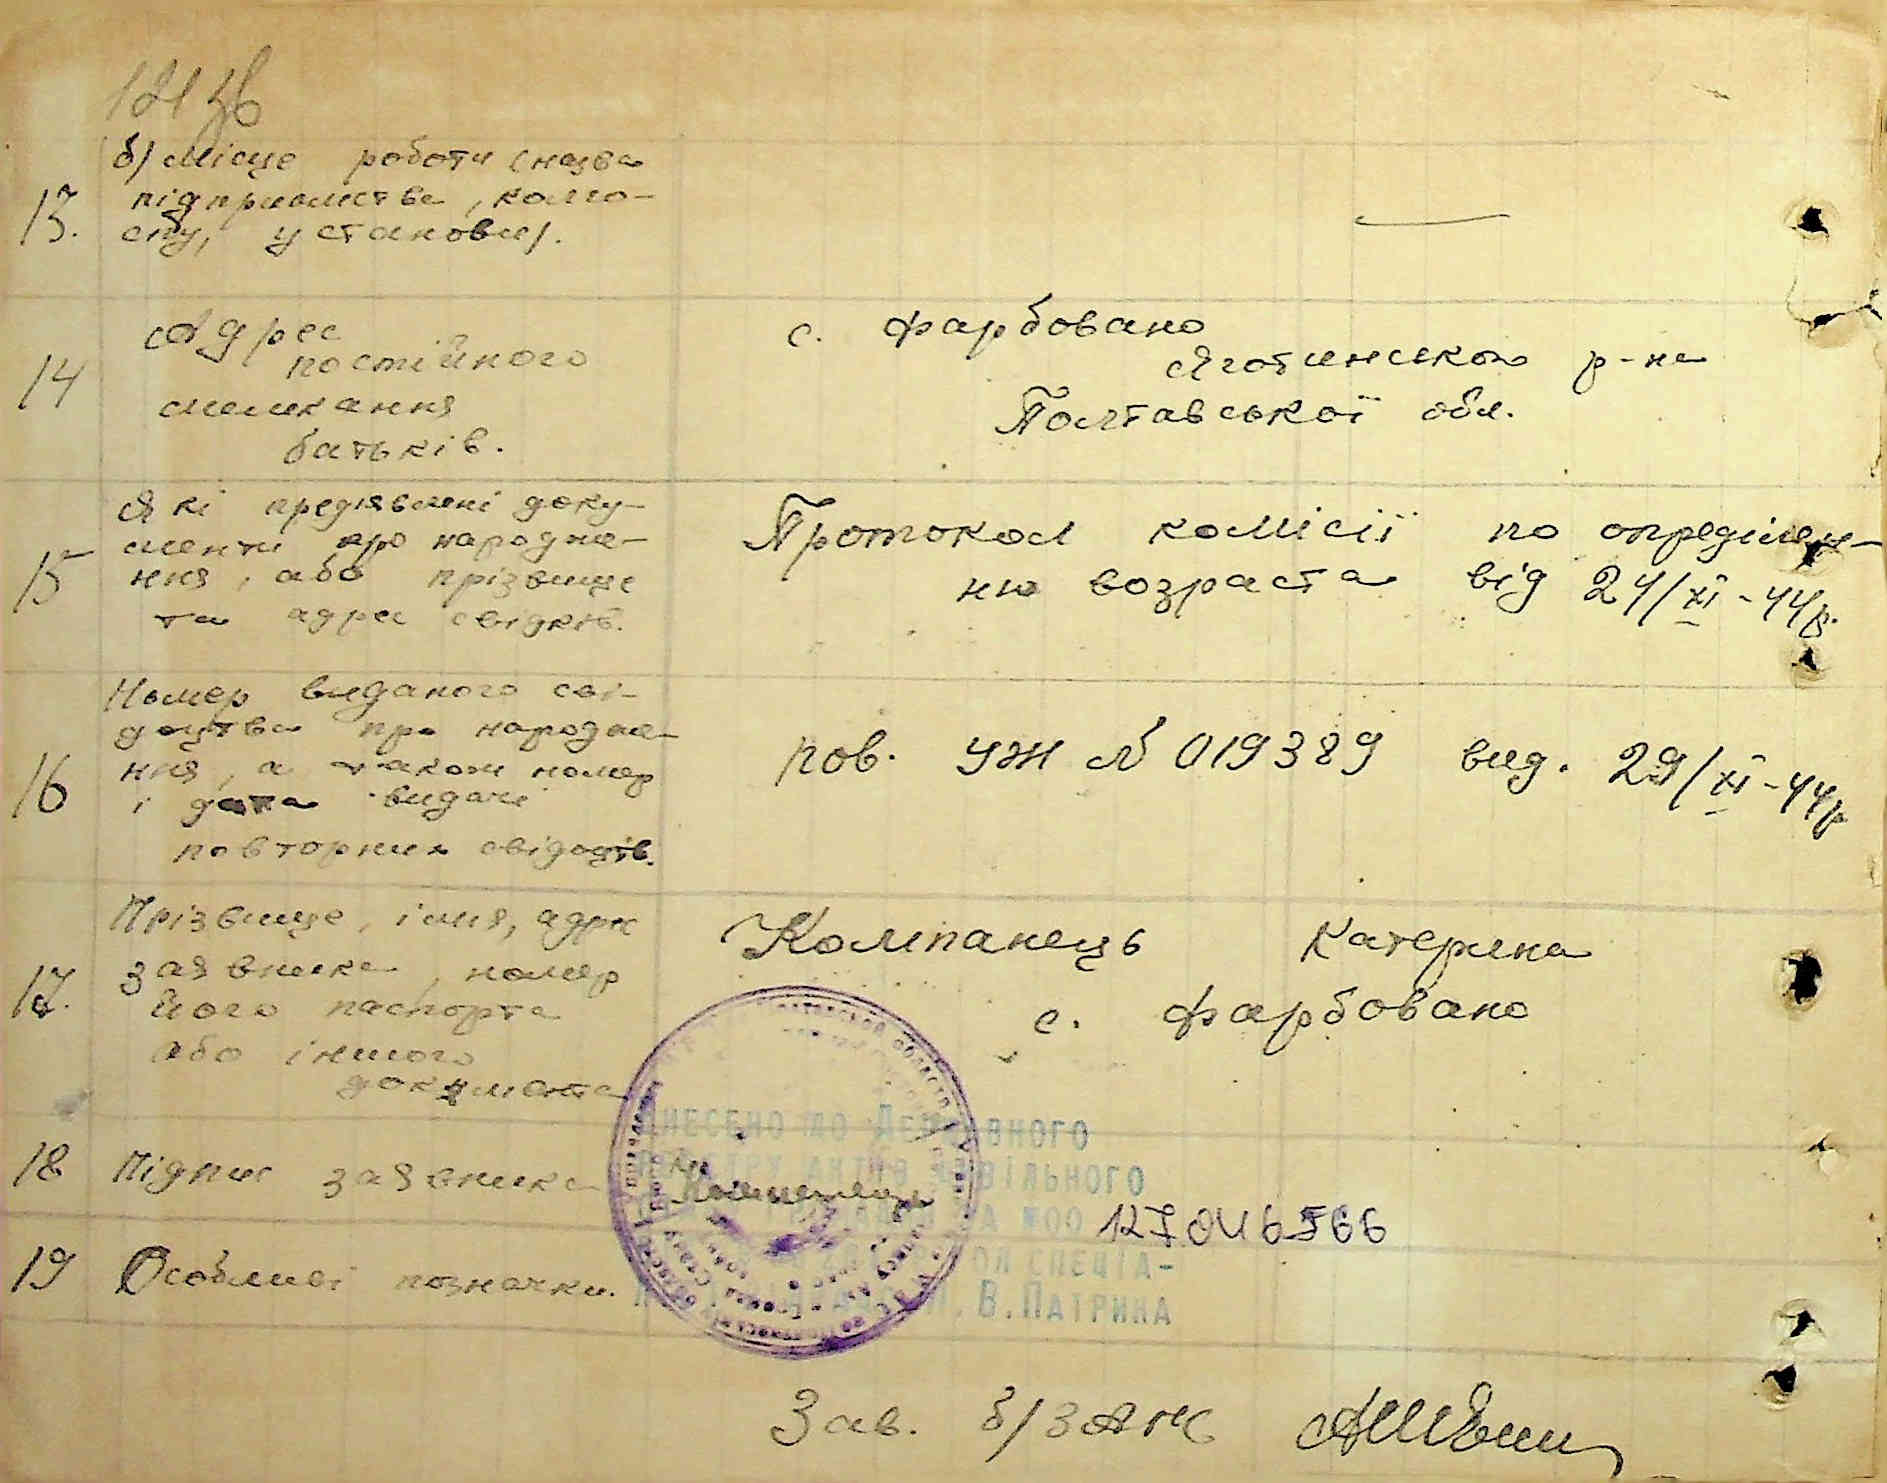 13. б) місце роботи (назва
підприємства, колго-
спу, установи).
14 Адрес
постійного
мешкання
батьків.
с. Фарбовано
Яготинського р-на
Полтавської обл.
15 Які предявлені доку-
менти про народже-
ння, або прізвище
та адрес свідків.
Протокол комісії по опреділен-
ню возраста від 24/XI-44р.
16 Номер виданого сві-
доцтва про народже-
ння, а також номер
і дата видачі
повторних свідоцтв.
пов. УЖ № 019389 вид. 29/XI-44р
17. Прізвище, імя, адрес
заявника, номер
його паспорта
або іншого
документа
Компанець Катерина
с. Фарбовано
18 Підпис заявника
Внесено до Державного
реєстру актів цивільного
127046566
19 Особливі позначки.
спеціа-
В. Патрика
Зав. б/ЗАГС